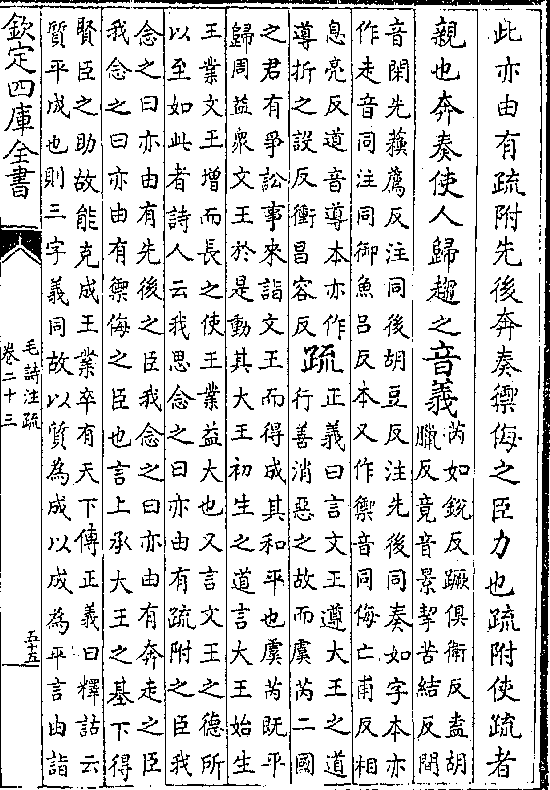 此亦由有疏附先後奔奏禦侮之臣力也疏附使疏者
親也奔奏使人歸趨之音義芮如銳反蹶俱衛反盍胡
臘反竟音景挈苦結反間
音閑先蘓薦反注同後胡豆反注先後同奏如字本亦
作走音同注同御魚呂反本又作禦音同侮亡甫反相
息亮反道音導本亦作
導折之設反衝昌容反疏正義曰言文王遵大王之道
行善消惡之故而虞芮二國
之君有爭訟事來詣文王而得成其和平也虞芮既平
歸周益衆文王於是動其大王初生之道言大王始生
王業文王增而長之使王業益大也又言文王之德所
以至如此者詩人云我思念之曰亦由有疏附之臣我
念之曰亦由有先後之臣我念之曰亦由有奔走之臣
我念之曰亦由有禦侮之臣也言上承大王之基下得
賢臣之助故能克成王業卒有天下傳正義曰釋詁云
質平成也則三字義同故以質為成以成為平言由詣
欽定四庫全書
毛詩注疏
卷二十三
五十五